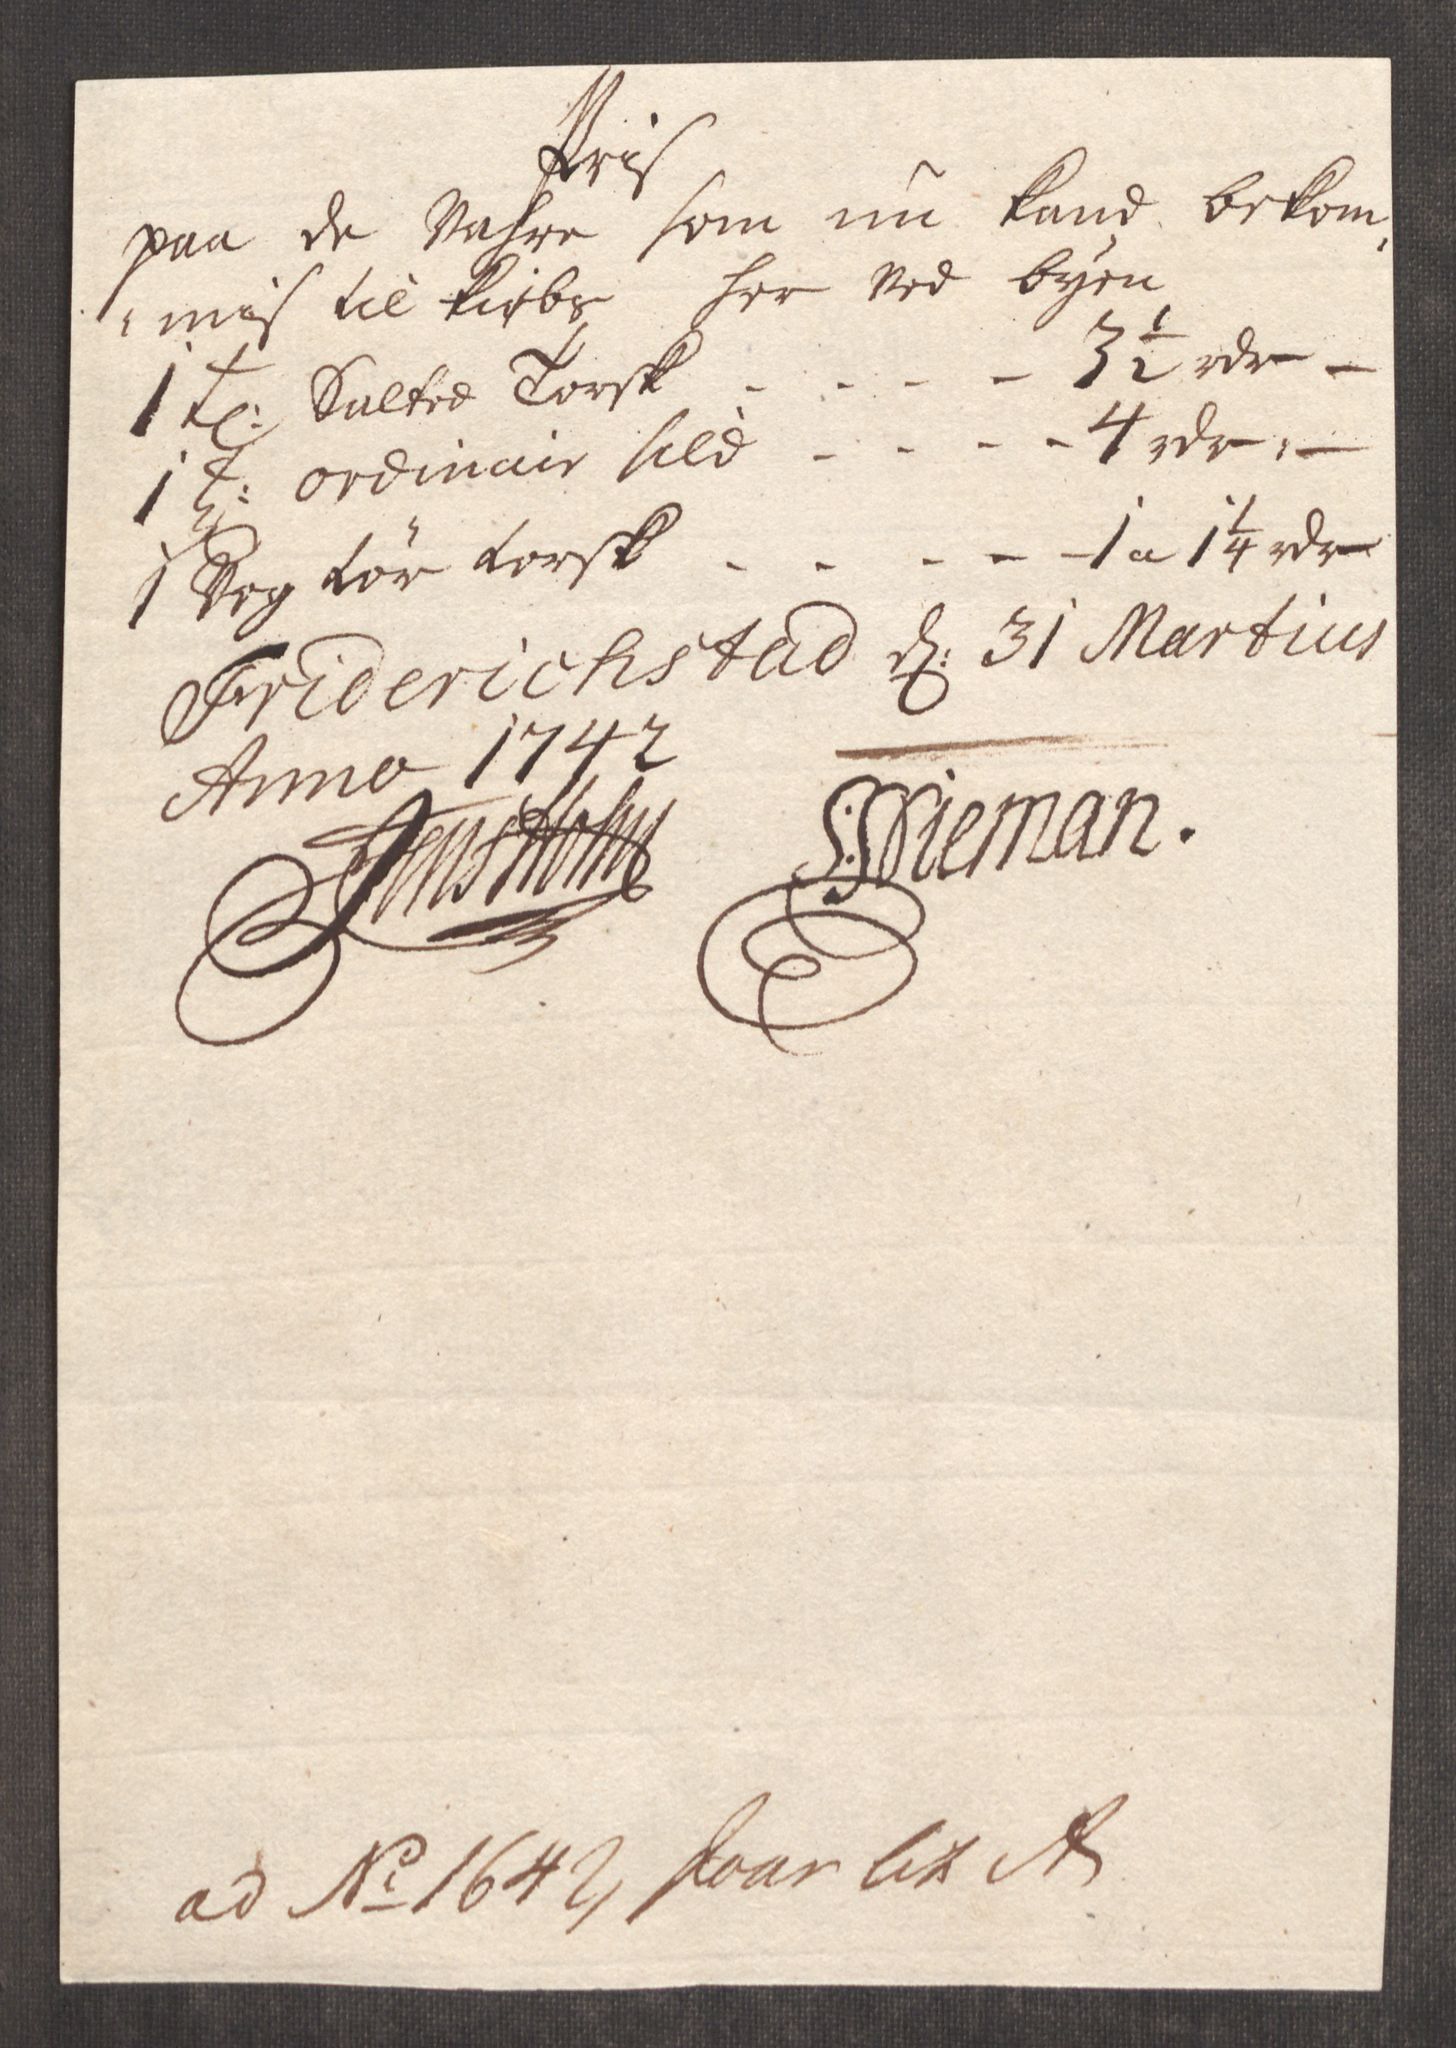 Prijs
paa de Vahre som nu kand bekom,
,mis til kiøbs her ved byen
1 tl: Salted Torsk - - - - 3 1/2 rdr -
1 t: ordinair sild - - - - 4 rdr, -
1 Vog tör torsk - - - - - 1 a 1 1/4 rdr
Friderichstad d: 31 Martius
Anno 1742
Jens Holm S: Wieman.
ad No 1642, Svar lit A